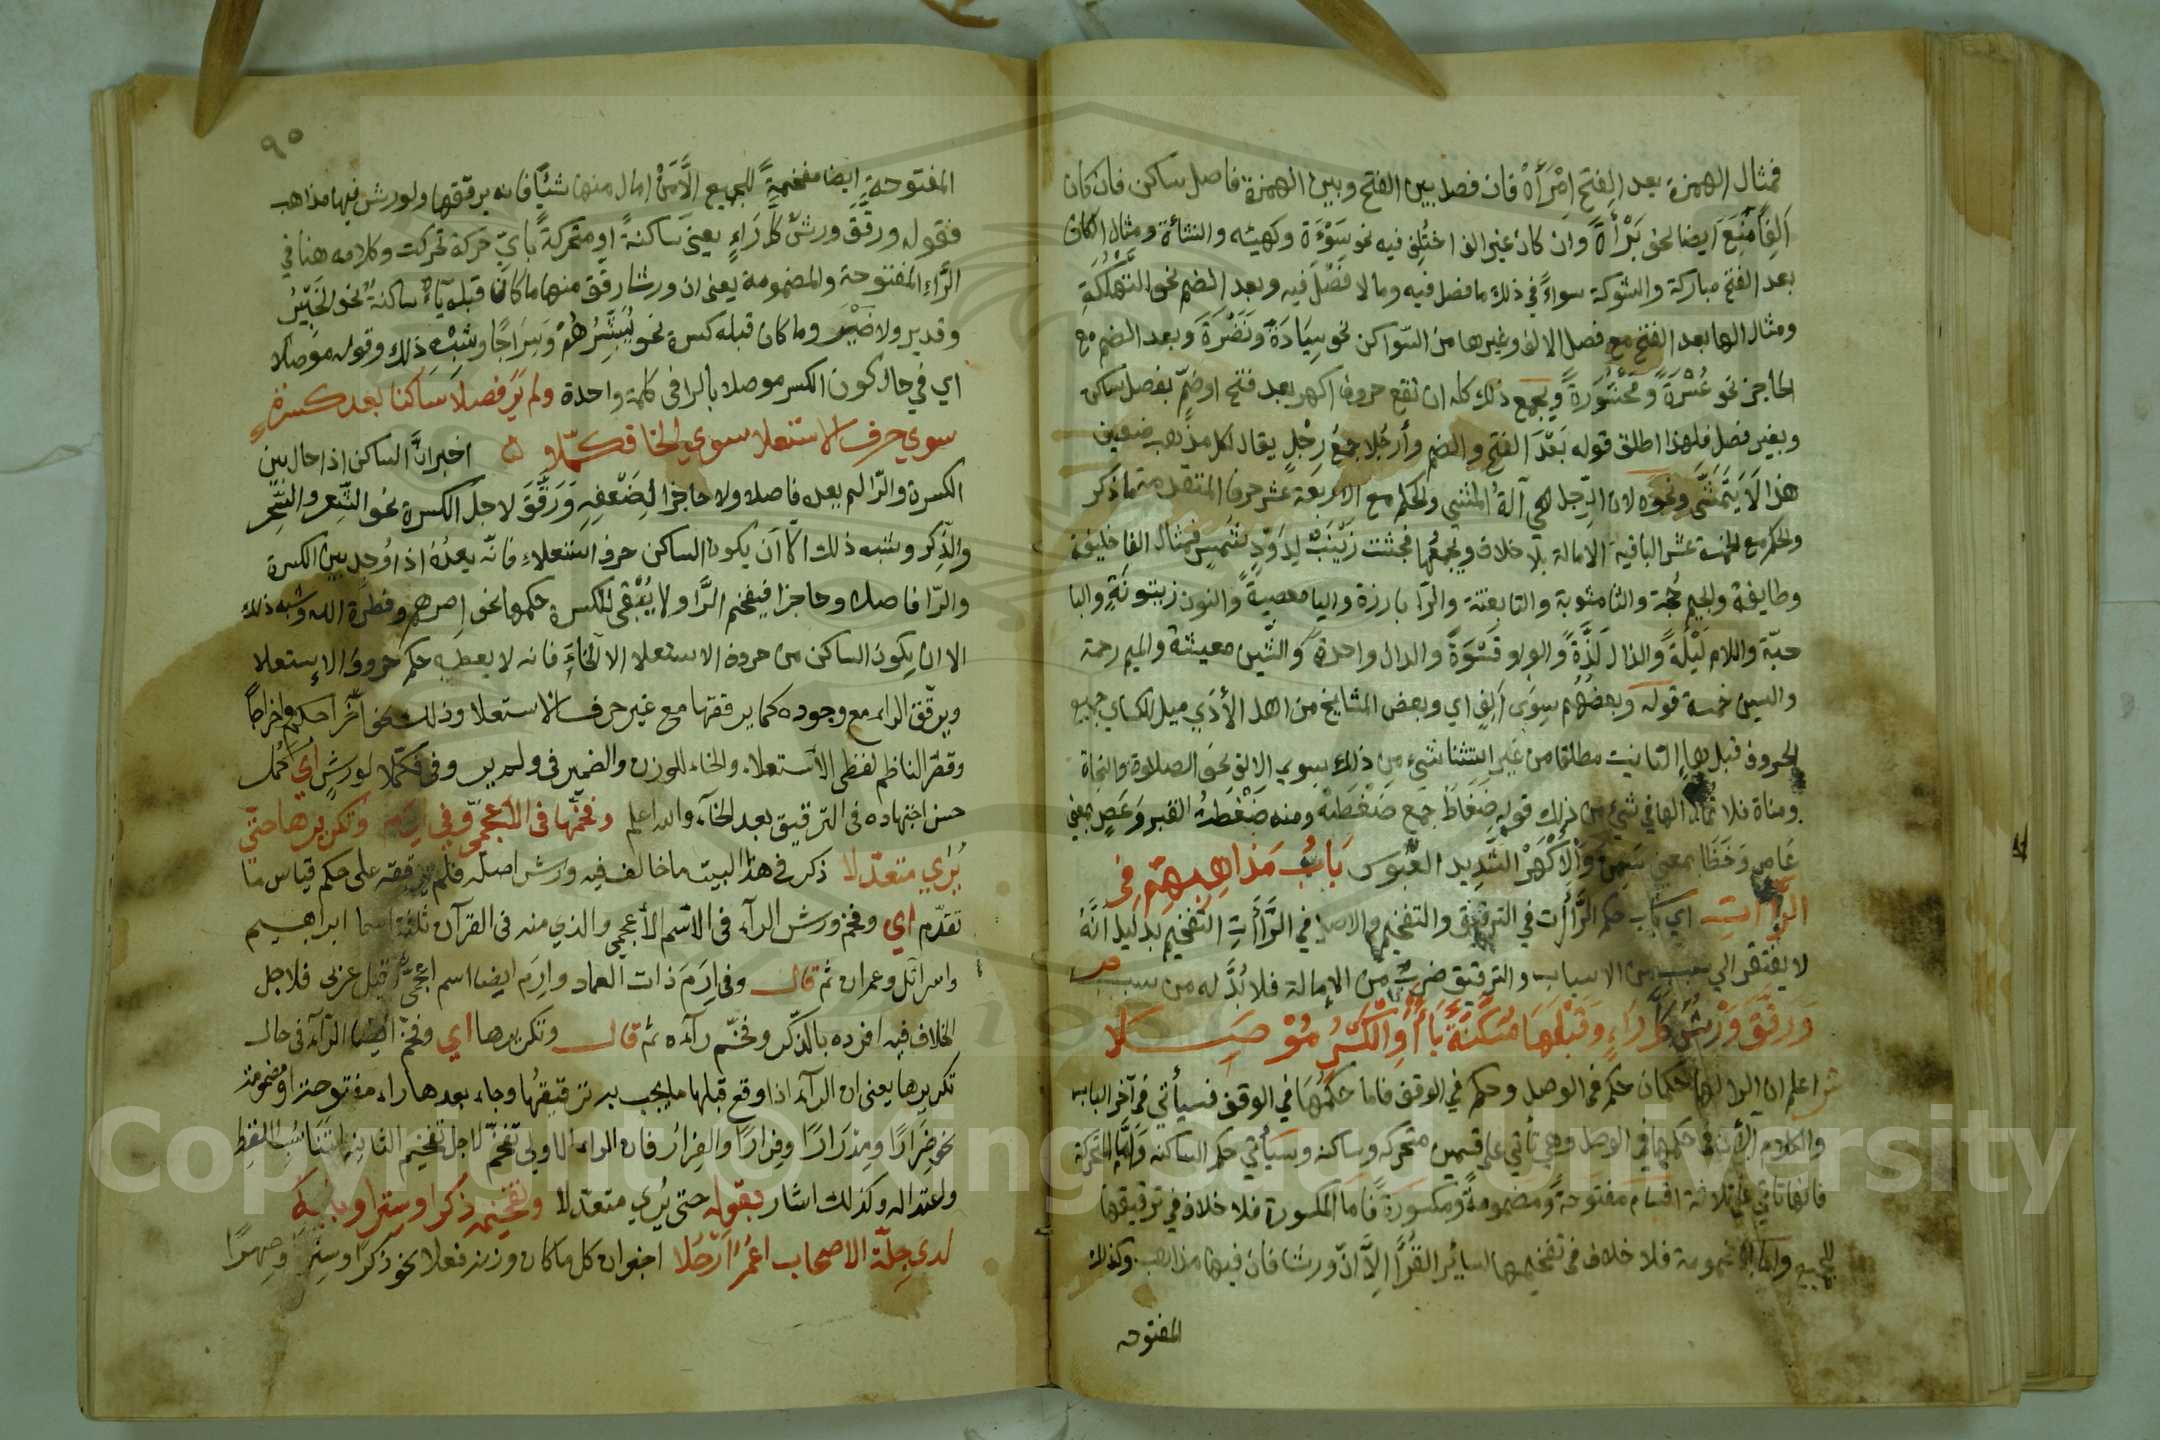 فمثال الهمزة بعد الفتح امْرَأَهْ فان فصل بين الفتح وبين الهمزة فاصل ساكن فان كان
اَلِفًا مُنِعَ ايضا نحو بَرْأَةً وان كان غير الف اختُلِف فيه نحو سَوْءَة وكهيئه والنشأة ومثال الكاف
بعد الفتح مباركة والشوكة سواءً في ذلك ما فصل فيه وما لا فَصْلَ فيه وبعد الضم نحو التَّهْلُكَةِ
ومثال الها بعد الفتح مع فصل الالف وغيرها من السّواكن نحو سِيَادَةً وَنَضْرَةَ وبعد الضم مع
الحاجز نحو عُسْرَةً و مَحْشُورَةً ويجمع ذلك كله ان تقع حروف اكهر بعد فتح او ضمّ بفصل ساكن
وبغير فصل فلهذا اطلق قوله بَعْدَ الفتح والضم وأرجُلا جمعُ رِجْلٍ يقال لكل مذهب ضعيف
هذا لَا يَتَمَشَّى ونحوه لان الرِّجل هي آلةُ المشي والحكم مع الاربعة عشر حرفا المتقدمة ما ذكر
والحكم مع الخمسة عشر الباقية الامالة بلا خلاف ويجمعها فجثت زَيْنَبْ لِذَوْدِ شَمسِ فمثال الفا خليفة
وطايفة والجيم حُجة والثا مثوبة والتا بغتة والزا بارزة واليا معصيةً والنون زيتونَةٍ والبا
حبّة واللام لَيْلَةً والذال لَذَّةً والواو قَسْوَةً والدال واحدةً والشّين معيشة والميم رحمة
والسين خمسة قوله وبعضُهُم سِوَى اَلِفٍ اي وبعض المشايخ من اهل الأدَي ميل للكساي جميع
الحروف قبل هاءِ التانيث مطلقا من غير استثنا شيء من ذلك سوي الالف نحو الصلاوة والنجاة
ومناة فلا تمال الها في شيء من ذلك قوله ضَغَاطُ جمع ضَغْطَهْ ومنه ضَغْطَتُ القبر وَعَصٍ بمعني
عَاصٍ وَخَظَا بمعني سَمِنَ وَالاَكْهَرْ الشَّدِيد العُبُوسِ بَابُ مَذاهِبِهِم فِي
الرَّآتِ اي باب حكم الرَّاآت في الترقيق والتفخيم والاصل في الرَّاآتِ التفخيم بدليل انَّهُ
لا يفتقر الي سبب من الاسباب والترقيق ضربٌ من الإمالة فلا بُدَّ له من سبب ص
وَرَقَّقَ وَرْشٌ كُلَّ رَاءٍ وَقَبْلَهَا مُسَكَّنَةً يَاءٌ أَوِ الْكَسْرُ مُوْصَلا
ش اعلم ان الرا لها حكمان حكم في الوصل وحكم في الوقف فاما حكمُها في الوقف فسيأتي في آخر الباب
والكلام الآن في حكمها في الوصل وهي تأتي علي قسمين متحركه وساكنه وسيأتي حكم الساكنه وَامَّا المتحركة
فانها تاتي علي ثلاثة اقسام مفتوحةً ومضمومةً ومكسورةً فاما المكسورة فلا خلاف في ترقيقها
للجميع واما المضمومة فلا خلاف في تفخيمها لسائر القُرَّا اِلاَّ انّ ورشا فان فيها مذاهب وكذلك
المفتوحه
٩٠
المفتوحةِ ايضا مفخمةً للجميع الَّا مَنْ امال منها شيئًا فانه يرققها ولورش فيها مذاهب
فقوله ورقّق ورشٌ كل رَاءٍ يعني ساكنةً او متحركةً بايّ حركة تحركت وكلامه هنا في
الرَّاءِ المفتوحة والمضمومة يعني ان ورشا رقق منهما ما كان قبله ياءٌ ساكنةٌ نحو الخَيْرُ
وقدير ولا ضَيْر وما كان قبله كسرة نحو يُبَشِّرُهُمْ وَسِرَاجًا وشِبْهِ ذلك وقوله موصَلا
اي في حال كون الكسر موصلا بالرا في كلمة واحدة ولم يَرَ فصلا ساكنا بعد كسرةٍ
سوي حرف الاستعلا سوي الخا فكمّلا ش اخبر انَّ الساكن اذا حال بين
الكسرة والرّا لم يعد فاصلا ولا حاجزا لِضَعْفِهِ وَرَقَّقَ لاجل الكسرة نحو الشِّعر والسِّحر
والذِّكر وشبه ذلك الّا اَن يكون الساكن حرف استعلاءٍ فانّه يعدُهُ اذا وُجد بين الكسرة
والرّا فاصلا وحاجزا فيفخم الرَّا ولا يُبْقي للكسرة حكمها نحو اِصرهم وفطرَة الله وشبه ذلك
الا ان يكون الساكن من حروف الاستعلا الا الخاءَ فانه لا يعطيه حكم حروف الاِستعلا
ويرقّق الراء مع وجوده كما يرققها مع غير حرف الاستعلا وذلك نحو اخراجكم واخراجًا
وقصر الناظم لفظي الاستعلاء والخاء للوزن والضمير في ولم ير وفي فكمّلا لورش اي كمل
حسن اجتهاده في الترقيق بعد الخآء والله اعلم وفخّمها في الاعجميِّ وفي اِرَم وتكريرها حتّي
يُرَي متعدّلا ذكر في هذا البيت ما خالف فيه ورش اصله فلم يرققه على حكم قياس ما
تقدّم اي وفخم ورش الرآء في الاسم الأعجمي والذي منه في القرآن ثلثة اسما ابراهيم
واسرائل وعمران ثم قال وفي اِرَمَ ذات العماد وارَم ايضا اسم اعجميّ وقيل عربي فلاجل
الخلاف فيه افرده بالذّكر وفخّم رآءه ثم قال وتكريرها اي وفخم ايضا الرّآء في حال
تكريرها يعني ان الرآء اذا وقع قبلها ما يجب به ترقيقُها وجاء بعدها راء مفتوحة او مضمومة
نحو ضَرارًا ومِدْرَارًا وفِرارًا والفِرارُ فان الراء الاولي تفخّم لاجل تفخيم الثانية لتَنَاسُب اللفظ
واعتداله وكذلك اشار بقوله حتى يُرَي متعدّلا وتفخيمه ذِكرا وسِترا وبابَه
لدي جِلّة الاصحاب اعْمَرُ اَرْحُلا اخبر ان كل ما كان وزنه فعلا نحو ذكرًا وسترًا وصِهرًا